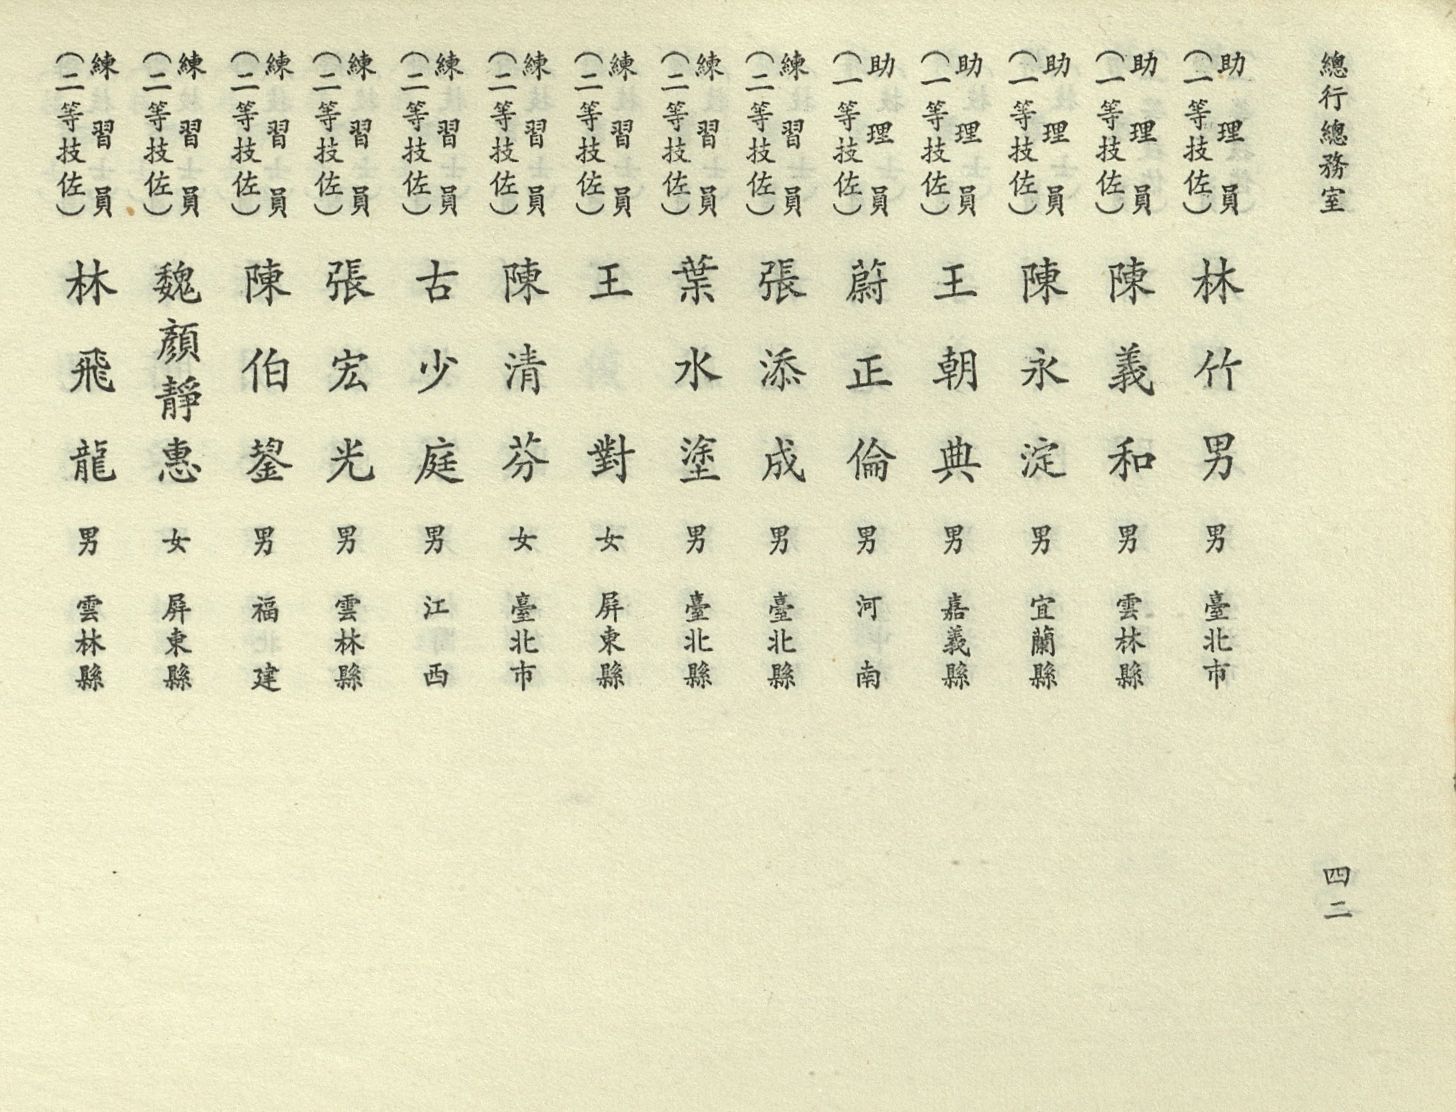 總行總務室
四二
助理員(一等技佐) 林竹男 男 臺北市
助理員(一等技佐) 陳義和 男 雲林縣
助理員(一等技佐) 陳永淀 男 宜蘭縣
助理員(一等技佐) 王朝典 男 嘉義縣
助理員(一等技佐) 蔚正倫 男 河南
練習員(二等技佐) 張添成 男 臺北縣
練習員(二等技佐) 葉水塗 男 臺北縣
練習員(二等技佐) 王對 女 屏東縣
練習員(二等技佐) 陳清芬 女 臺北市
練習員(二等技佐) 古少庭 男 江西
練習員(二等技佐) 張宏光 男 雲林縣
練習員(二等技佐) 陳伯鋆 男 福建
練習員(二等技佐) 魏顏靜惠 女 屏東縣
練習員(二等技佐) 林飛龍 男 雲林縣